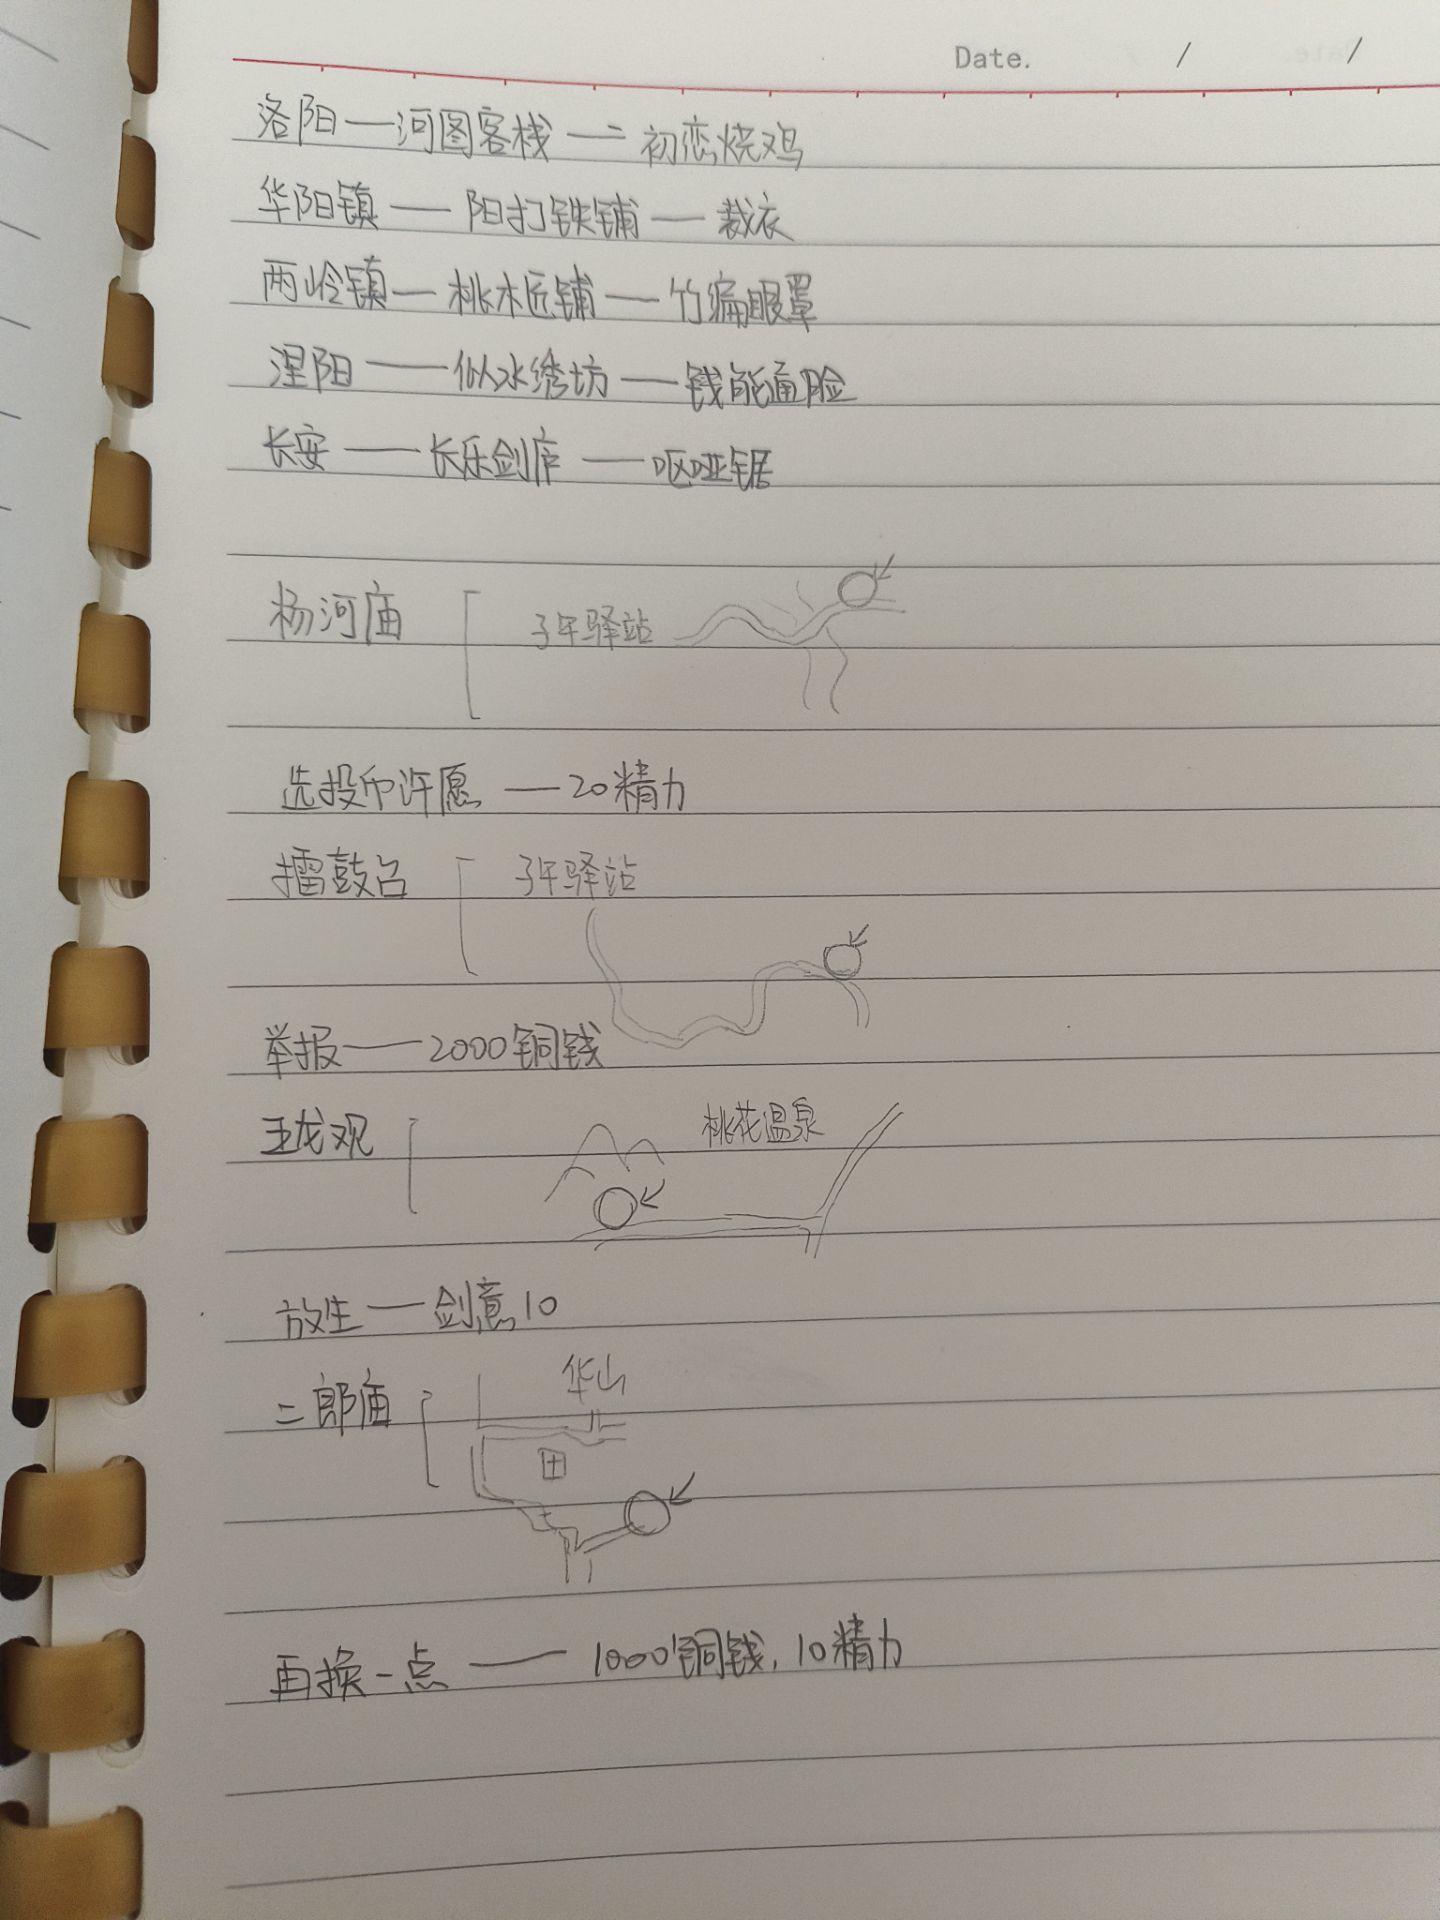 Date. / /
洛阳——河图客栈——初恋烧鸡
华阳镇——阳打铁铺——裁衣
两岭镇——桃木匠铺——竹编眼罩
涅阳——似水绣坊——钱能通脸
长安——长乐剑庐——呕哑锯
杨河庙 子午驿站
选投币许愿——20精力
擂鼓台 子午驿站
举报——2000铜钱
玉龙观 桃花温泉
放生——剑意10
二郎庙 华山
田
再换一点——1000铜钱,10精力